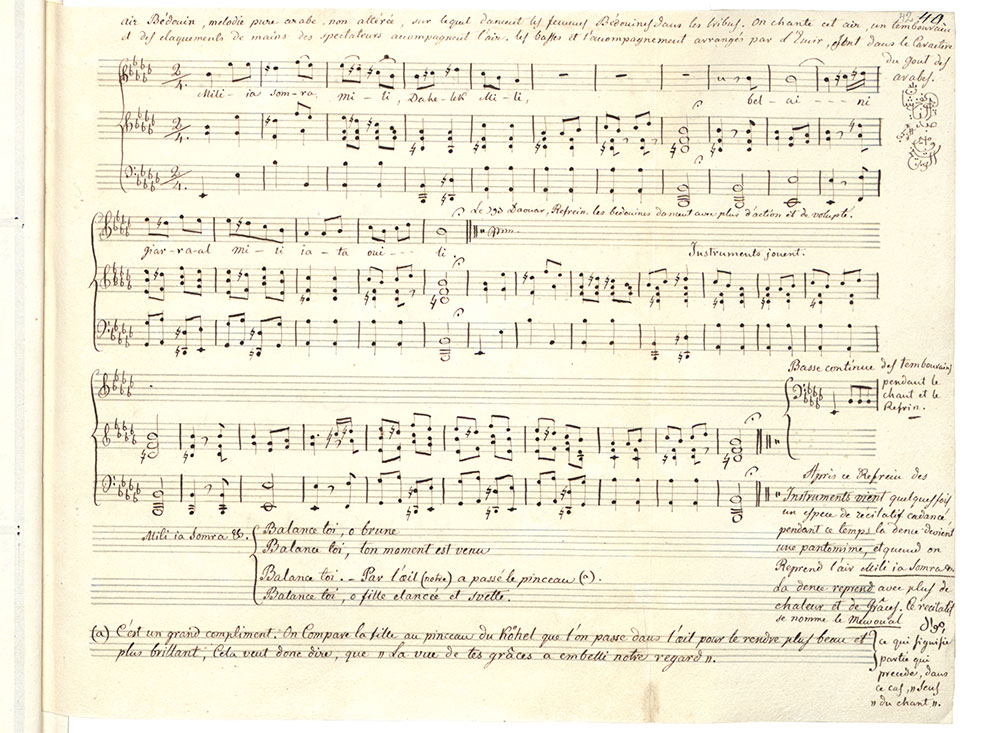 40.
air Bédouin, melodie pure arabe, non altérée, sur lequel dansent les femmes Bédouines dans les tribus. On chante cet air, un tembourain
et des claquements de mains des spectateurs accompagnent l'air. les basses et l'accompagnement arrangés par d'Emir, sont dans le caractère
du gout des
arabes.
Mili-ia somra. mi-li, Dahe-lek Mili, bel-ai----ni
giar-ra-al mi-li ia-ta oui----li.
Le دور Daouar, Refrein. les bédouines dansent avec plus d'action et de volupté.
Instruments jouent.
Basse continue des tembourains
pendant le
chant et le
Refrin.
Après ce Refrein des
Instruments vient quelquesfois
un espece de recitatif cadancé,
pendant ce temps la dence devient
une pantomime, et quand on
Reprend l'air Mili ia Somra &c.
La dence reprend avec plus de
chaleur et de Grâces. le recitatif
se nomme le Mewoual
ce qui signifie
partie qui
precede, dans
ce cas, "seul
" du chant ".
Mili ia Somra &c.
Balance toi, o brune
Balance toi, ton moment est venu
Balance toi. - Par l'œil (notre) a passé le pinceau (a).
Balance toi, o fille elancée et svette.
(a) C'est un grand compliment. On Compare la fille au pinceau du köhel que l'on passe dans l'œil pour le rendre plus beau et
plus brillant, Cela veut donc dire, que " La vue de tes grâces a embelli notre regard ".